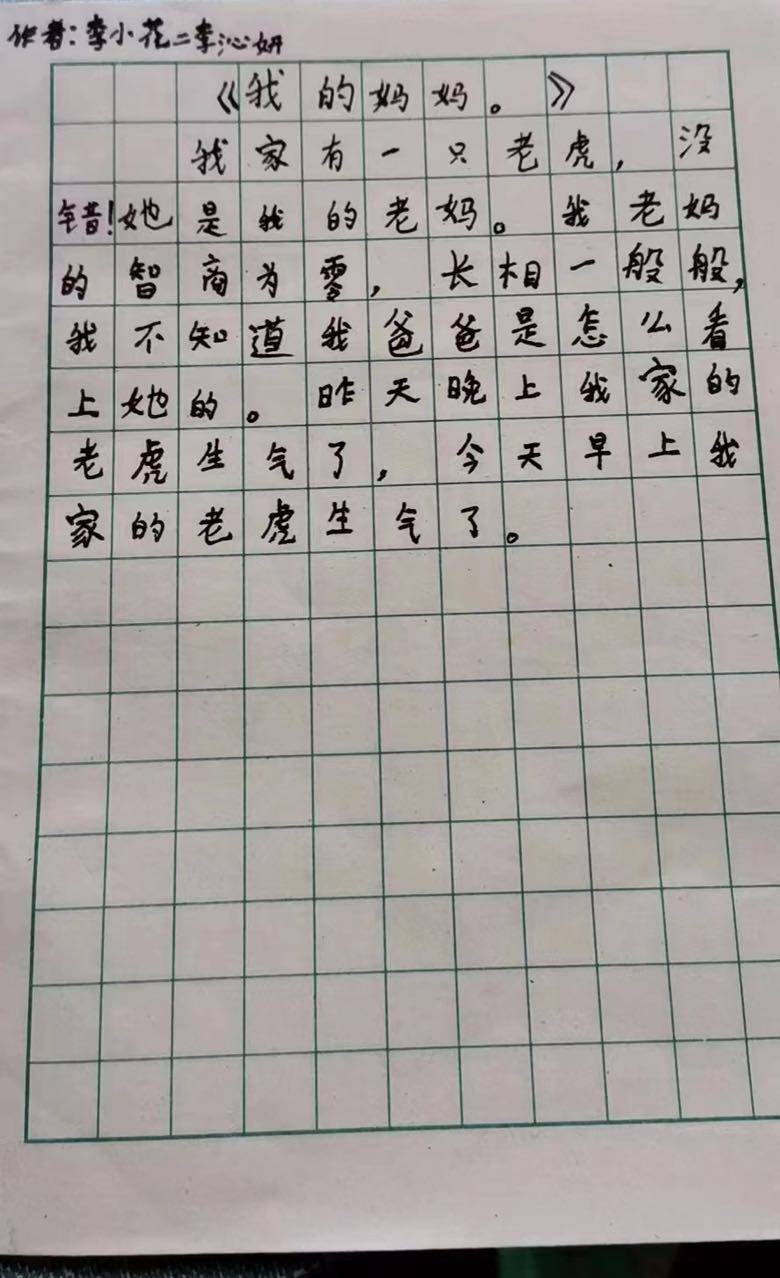 作者：李小花二李沁妍
《我的妈妈。》
我家有一只老虎，没
错！她是我的老妈。我老妈
的智商为零，长相一般般，
我不知道我爸爸是怎么看
上她的。昨天晚上我家的
老虎生气了，今天早上我
家的老虎生气了。